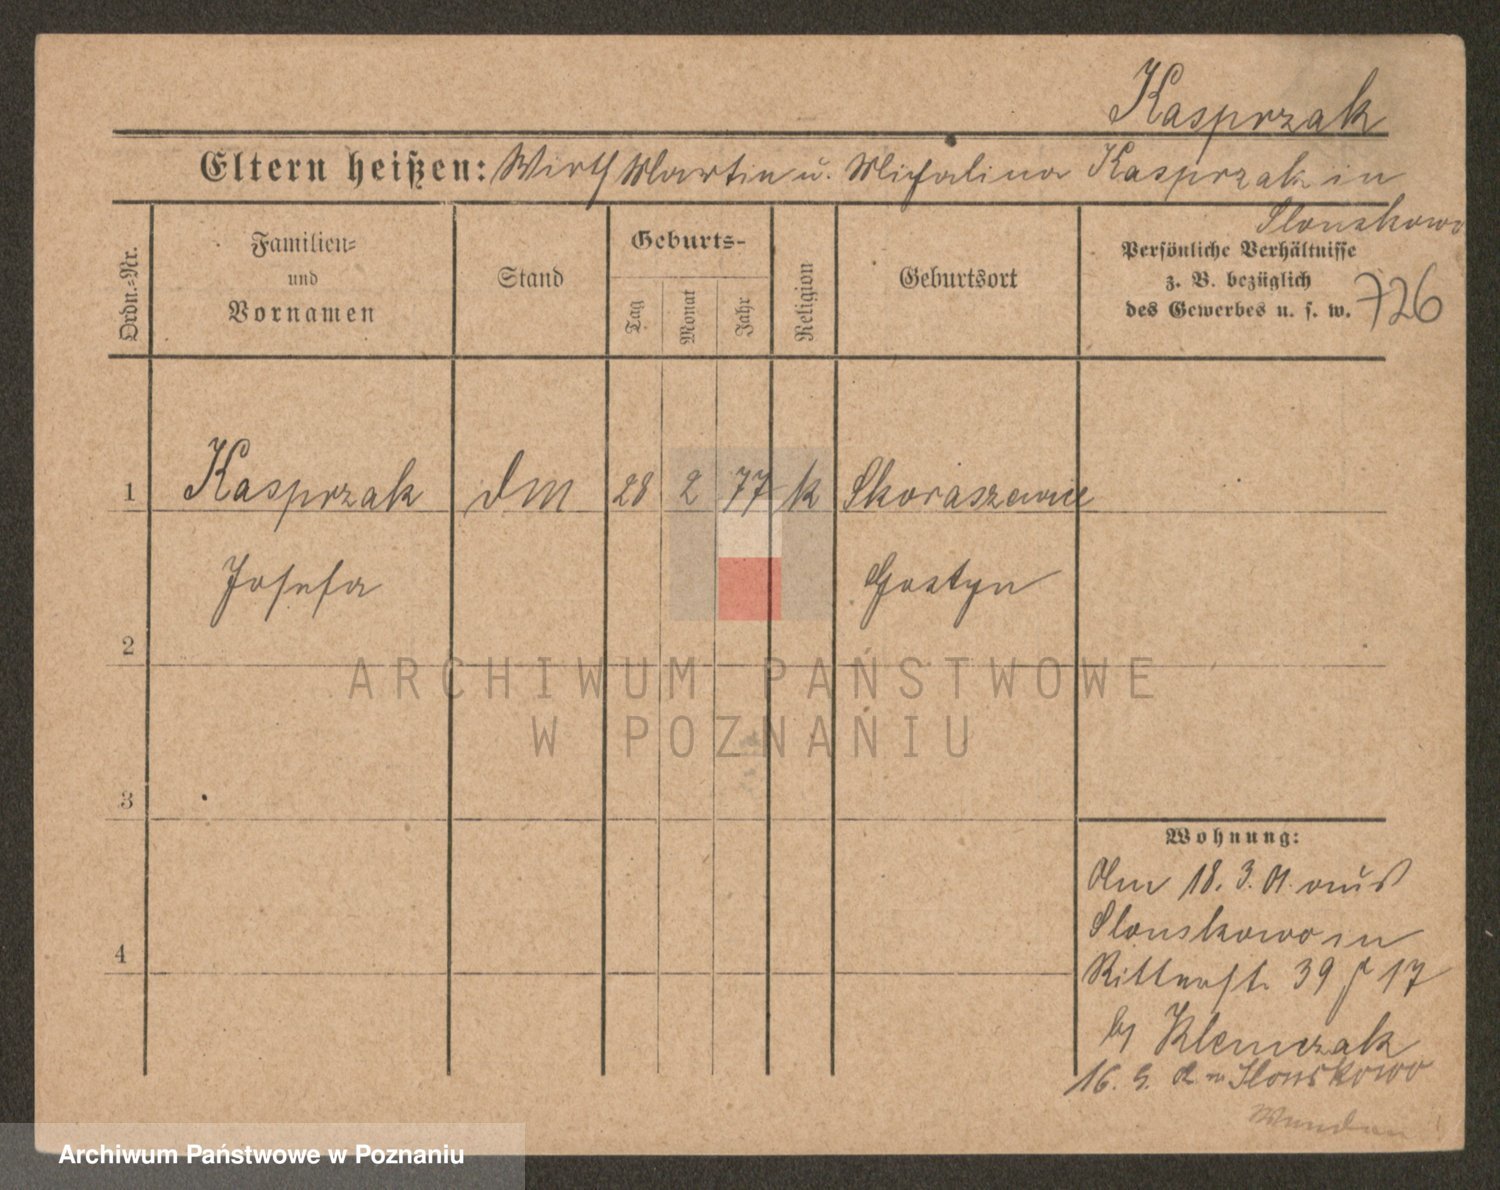 Kasprzak
Eltern heißen: Wirth Martin u. Michalina Kasprzak in
Slonskowo
Ordn.-Nr.
Familien-
und
Vornamen
Stand
Geburts-
Tag
Monat
Jahr
Religion
Geburtsort
Persönliche Verhältnisse
z. B. bezüglich
des Gewerbes u. s. w.
726
1 Kasprzak dm 28 2 77 k Skoraszewice
Josefa Gostyn
2
3
4
ARCHIWUM PAŃSTWOWE
W POZNANIU
Wohnung:
18. 3. 01. aus
Slonskowo in
Ritterst. 39 17
by Klemczak
16. 9. n Slonskowo
Archiwum Państwowe w Poznaniu